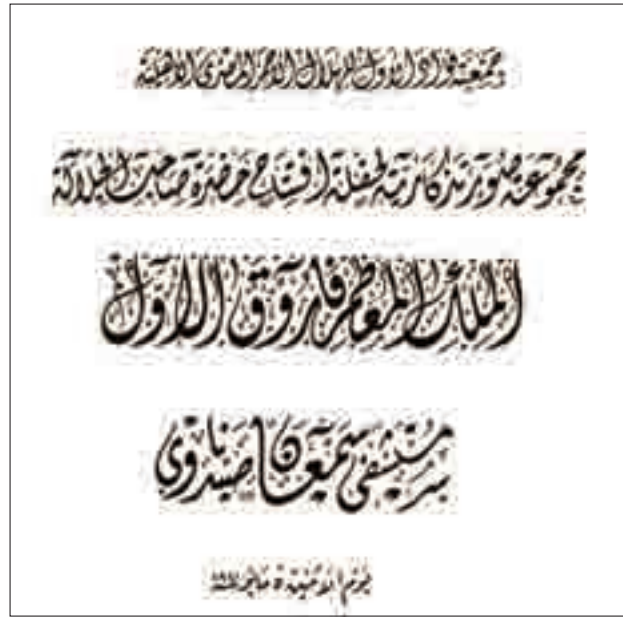 جمعية فؤاد الأول للهلال الأحمر المصرى الأهلية
مجموعة صور تذكارية لحفلة افتتاح حضرة صاحب الجلالة
الملك المعظم فاروق الأول
مستشفى سمعان صيدناوى
يوم الاثنين ٥ مايو